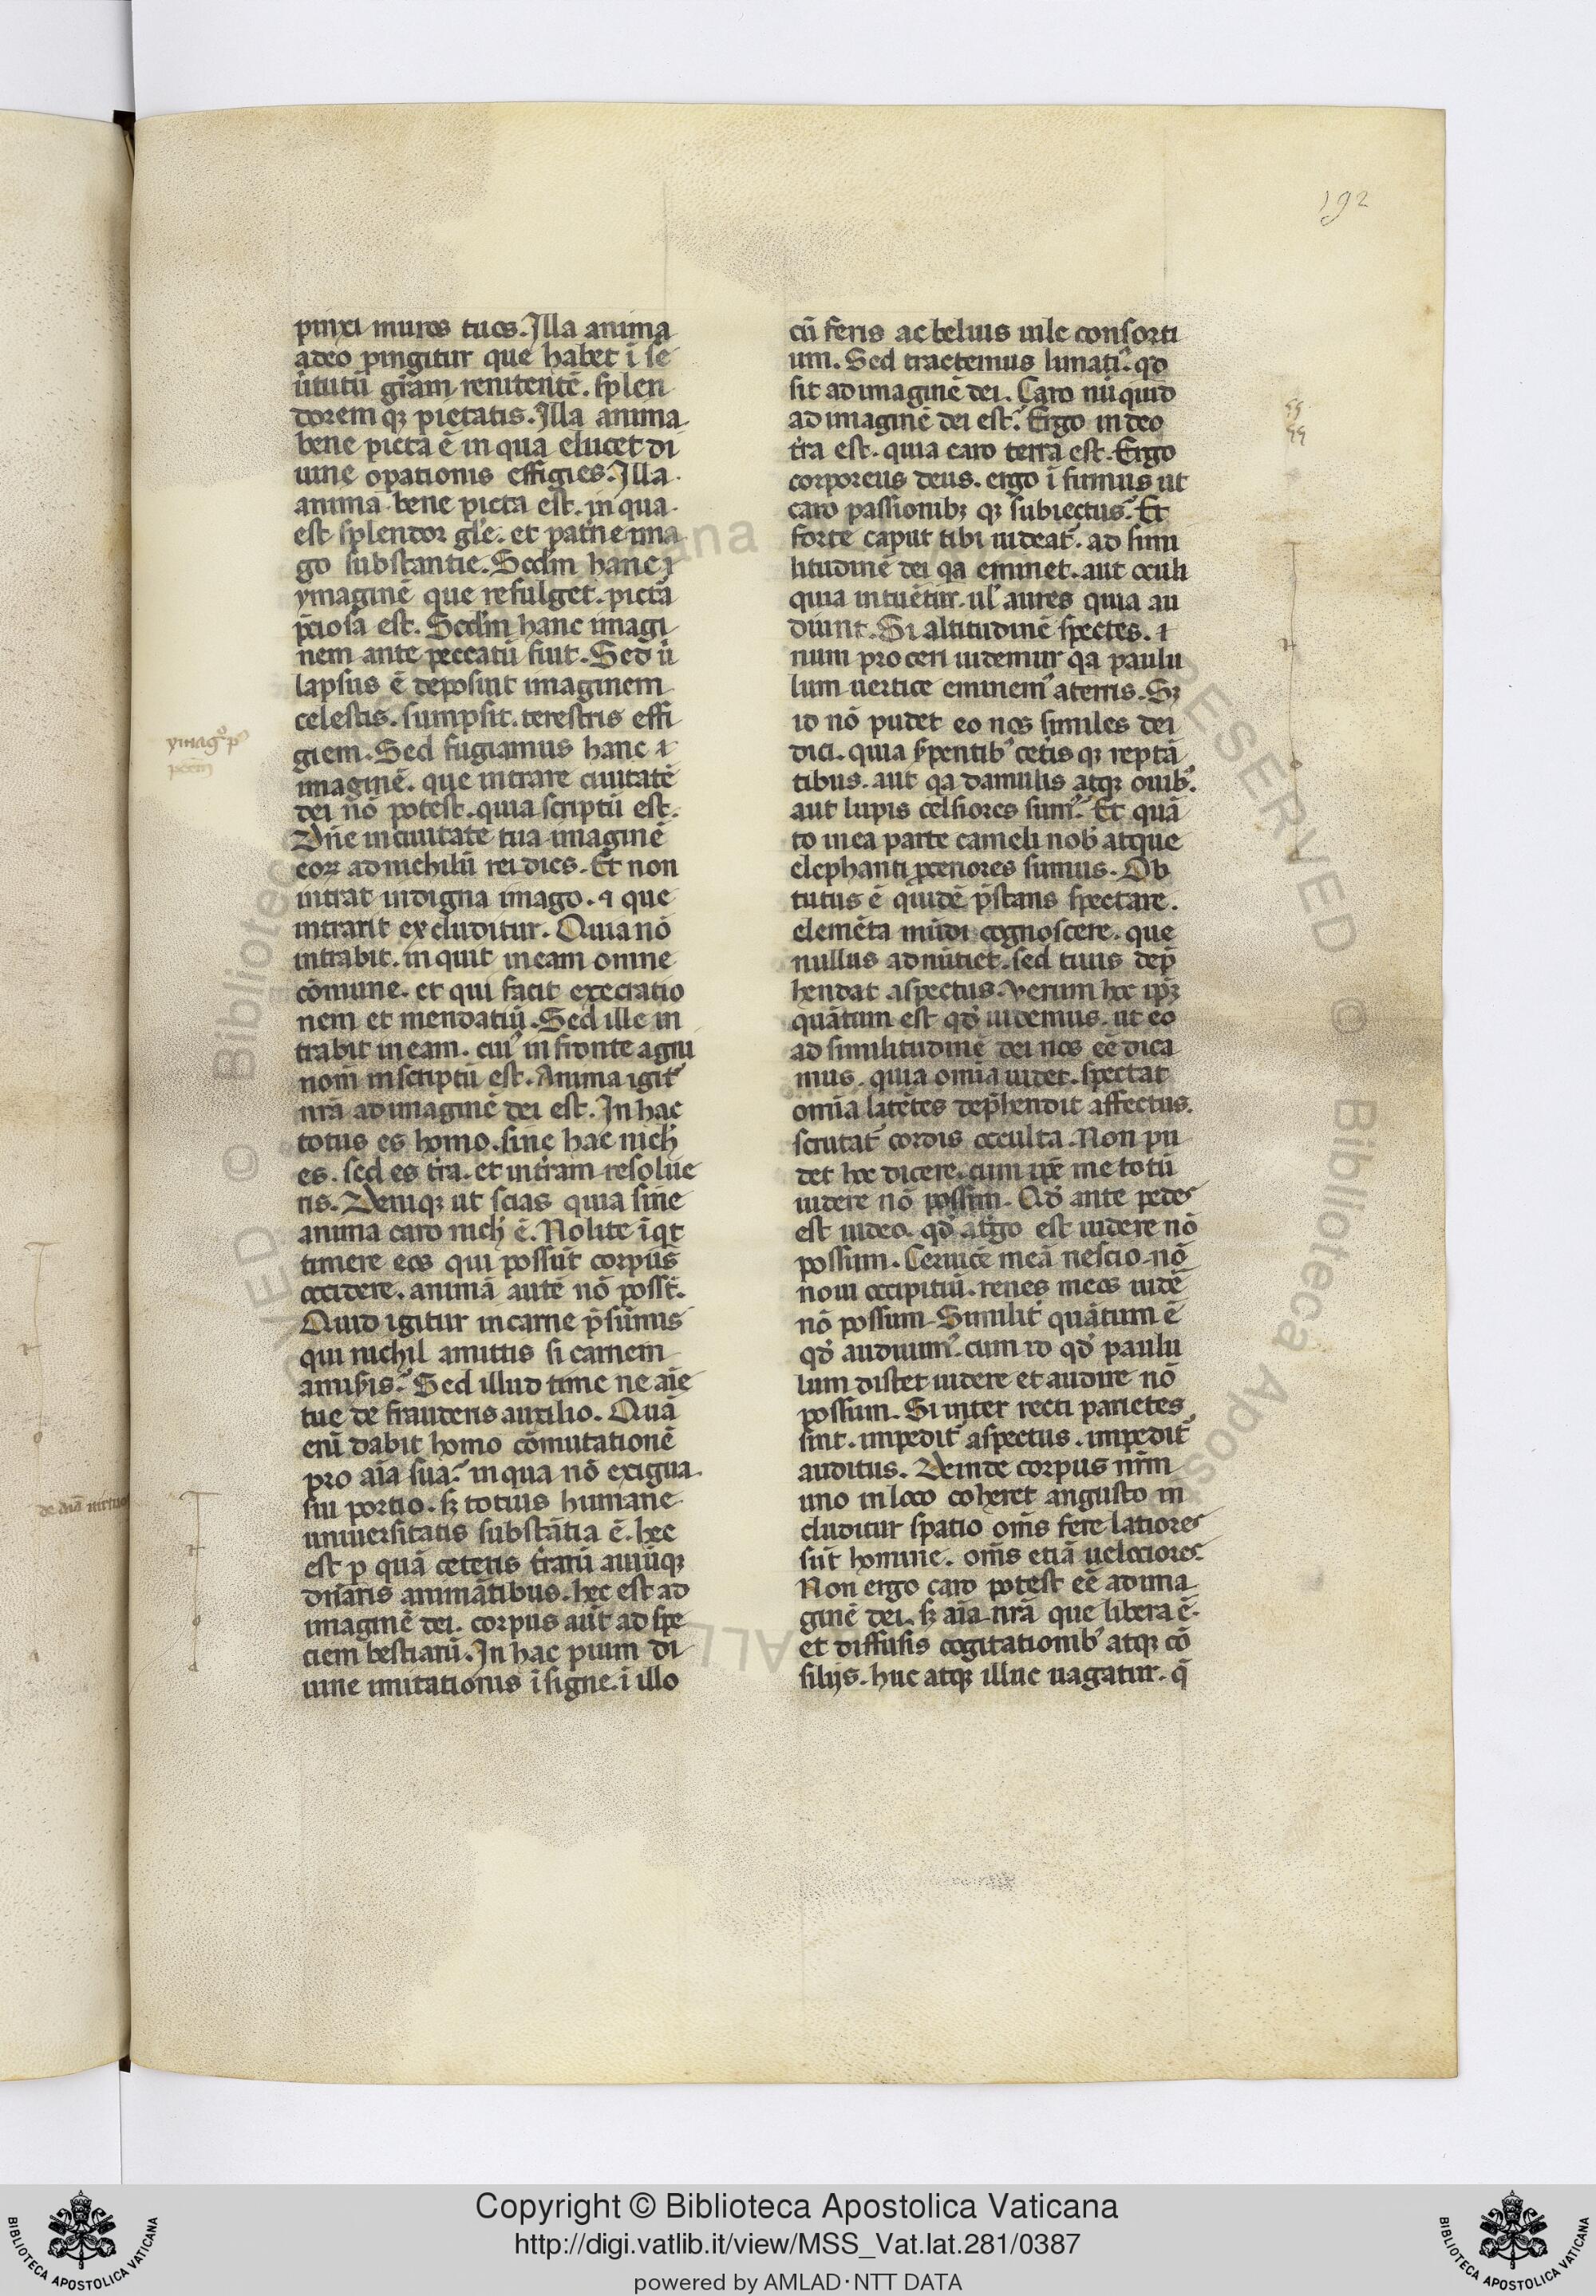 192
pinxi muros tuos. Illa anima
adeo pingitur que habet ī se
ũtutū grãm renitentē. splen
dorem qȝ pietatis. Illa anima
bene picta ē in qua elucet di
uine opationis effigies. Illa
anima bene picta est. in qua
est splendor glẽ. et patñe ima
go substantie. Scdm̃ hanc
ymaginē que refulget. picta
p̃ciosa est. Scdm̃ hanc imagi
nem ante peccatū fuit. Sed ũ
lapsus ē deposuit imaginem
celestis. sumpsit. terestris effi
giem. Sed fugiamus hanc
imaginē. que intrare ciuitatē
dei nō potest. quia scriptū est.
Dñe in ciuitate tua imaginē
eoꝝ ad nichilū rei dies. Et non
intrat indigna imago. ⁊ que
intrarit excluditur. Quia nō
intrabit. in quit in eam omne
cōmune. et qui facit execratio
nem et mendatiū. Sed ille in
trabit in eam. cuiꝰ in fronte agni
nom̃ inscriptū est. Anima igit᷑
nr̃a ad imaginē dei est. In hac
totus es homo. sine hac nich̃
es. sed es t̃ra. et in t̃ram resolue
ris. Deniqȝ ut scias quia sine
anima caro nich̃ ē. Nolite īqt
timere eos qui possūt corpus
occidere. animā autē nō posst̃.
Quid igitur in carne p̃sumis
qui nichil amittis si carnem
amiẜis. Sed illud time ne aĩe
tue de frauderis auxilio. Quā
enī dabit homo cōmutationē
pro aĩa sua. in qua nō exigua
sui portio. sȝ totius humane
uniuersitatis substātia ē. hec
est ꝑ quā ceteris t̃rarū auiūqȝ
dñaris animātibus. hec est ad
imaginē dei. corpus aūt ad spe
ciem bestiarū. In hac pium di
uine imitationis īsigne. ī illo
cū feris ac beluis uile consorti
um. Sed tractemus lunatiꝰ. qd
sit ad imaginē dei. Caro nūquid
ad imaginē dei est. Ergo in deo
t̃ra est. quia caro terra est. Ergo
corporeus deus. ergo ī firmus ut
caro passionibȝ qȝ subiectus. Et
forte caput tibi uideat᷑. ad simi
litudinē dei qa eminet. aut oculi
quia intuētur. ul̃ aures quia au
diunt. Si altitudinē spectes. ⁊
num proceri uidemur qa paulu
lum uertice eminemꝰ a terris. Sȝ
id nō pudet eo nos similes dei
dici. quia ẜpentibꝰ cet̃is qȝ reptā
tibus. aut qa damulis atqȝ ouibꝰ.
aut lupis celsiores sumꝰ. Et quā
to in ea parte cameli nob̃ atque
elephanti p̃ceriores sumus. Ob
tutus ē quidē p̃stans spectare.
elemēta mūdi cognoscere. que
nullus adnūtiet. sed tuus dep̃
hendat aspectus. Verum hoc ip̃ȝ
quātum est qd̃ uidemus. ut eo
ad similitudinē dei nos eē dica
mus. quia omĩa uidet. spectat
omĩa latētes dep̃hendit affectus.
scrutat᷑ cordis occulta. Non pu
det hoc dicere. cum ip̃e me totū
uidere nō possim. Qd̃ ante pedes
est uideo. qd̃ a t̃go est uidere nō
possum. Ceruicē meā nescio. nō
noui occipitiū. renes meos uidē
nō possum. Similit̃ quātum ē
qd̃ audiuimꝰ. cum id qd̃ paulu
lum distet uidere et audire nō
possum. Si inter recti parietes
sint. impedit᷑ aspectus. impedit᷑
auditus. Deinde corpus nr̃m
uno in loco coheret angusto in
cluditur spatio om̃s fere latiores
sūt homine. om̃s etiā uelociores.
Non ergo caro potest eē ad ima
ginē dei. sȝ aĩa nr̃a que libera ē.
et diffusis cogitationibꝰ atqȝ cō
silijs. huc atqȝ illuc uagatur. q̃
Copyright © Biblioteca Apostolica Vaticana
http://digi.vatlib.it/view/MSS_Vat.lat.281/0387
powered by AMLAD·NTT DATA
BIBLIOTECA APOSTOLICA VATICANA
BIBLIOTECA APOSTOLICA VATICANA